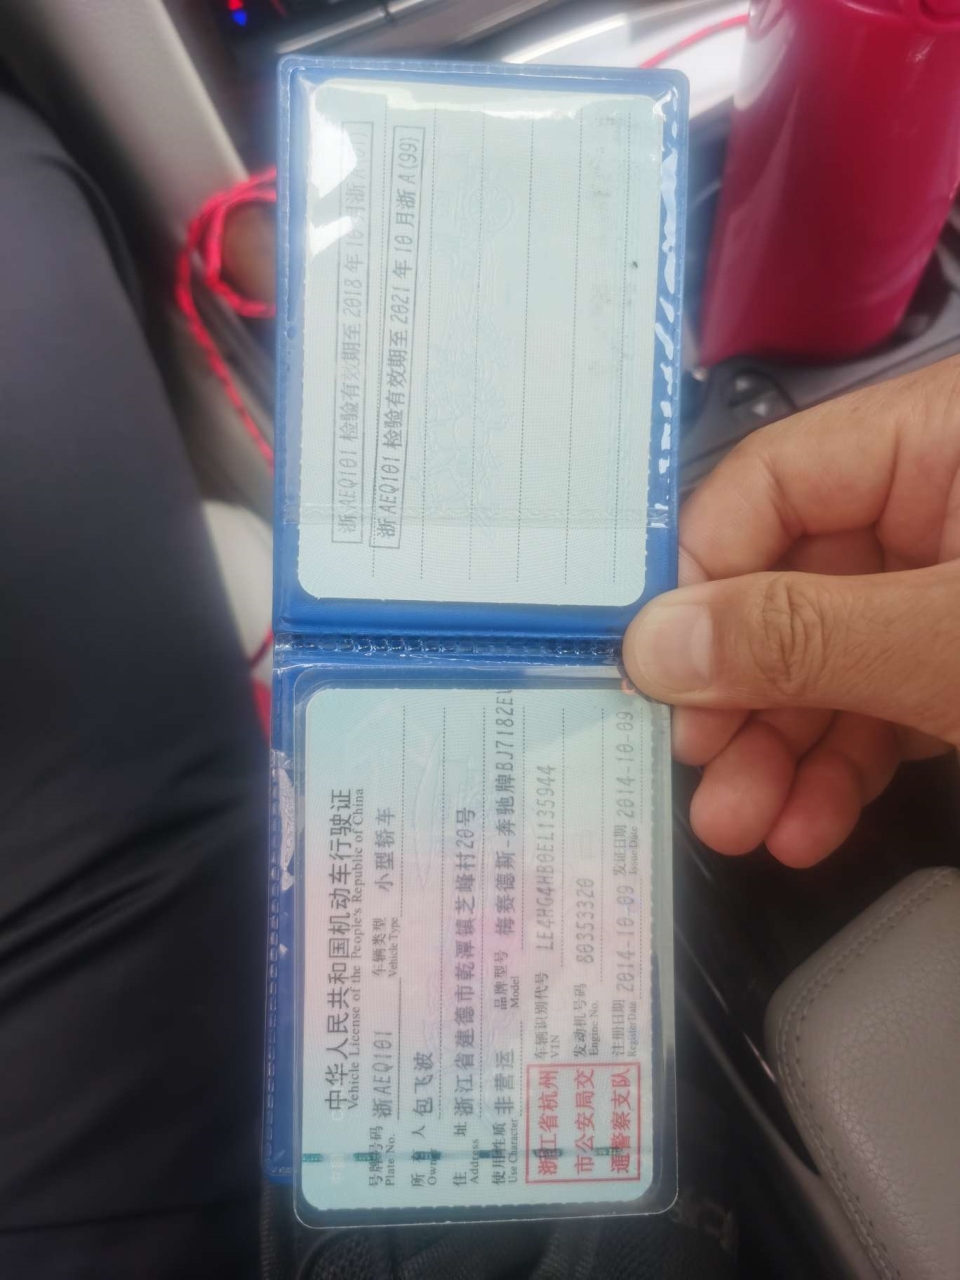 浙AEQ101 检验有效期至 2018 年 10 月浙
浙AEQ101 检验有效期至 2021 年 10 月浙 A(99)
中华人民共和国机动车行驶证
Vehicle License of the People's Republic of China
号牌号码 浙AEQ101 车辆类型 小型轿车
Plate No. Vehicle Type
所有人 包飞波
Owner
住址 浙江省建德市乾潭镇芝峰村20号
Address
使用性质 非营运 品牌型号 梅赛德斯-奔驰牌BJ7182E
Use Character Model
浙江省杭州
市公安局交
通警察支队
车辆识别代号 LE4HG4HB0EL135944
VIN
发动机号码 80353320
Engine No.
注册日期 2014-10-09 发证日期 2014-10-09
Register Date Issue Date